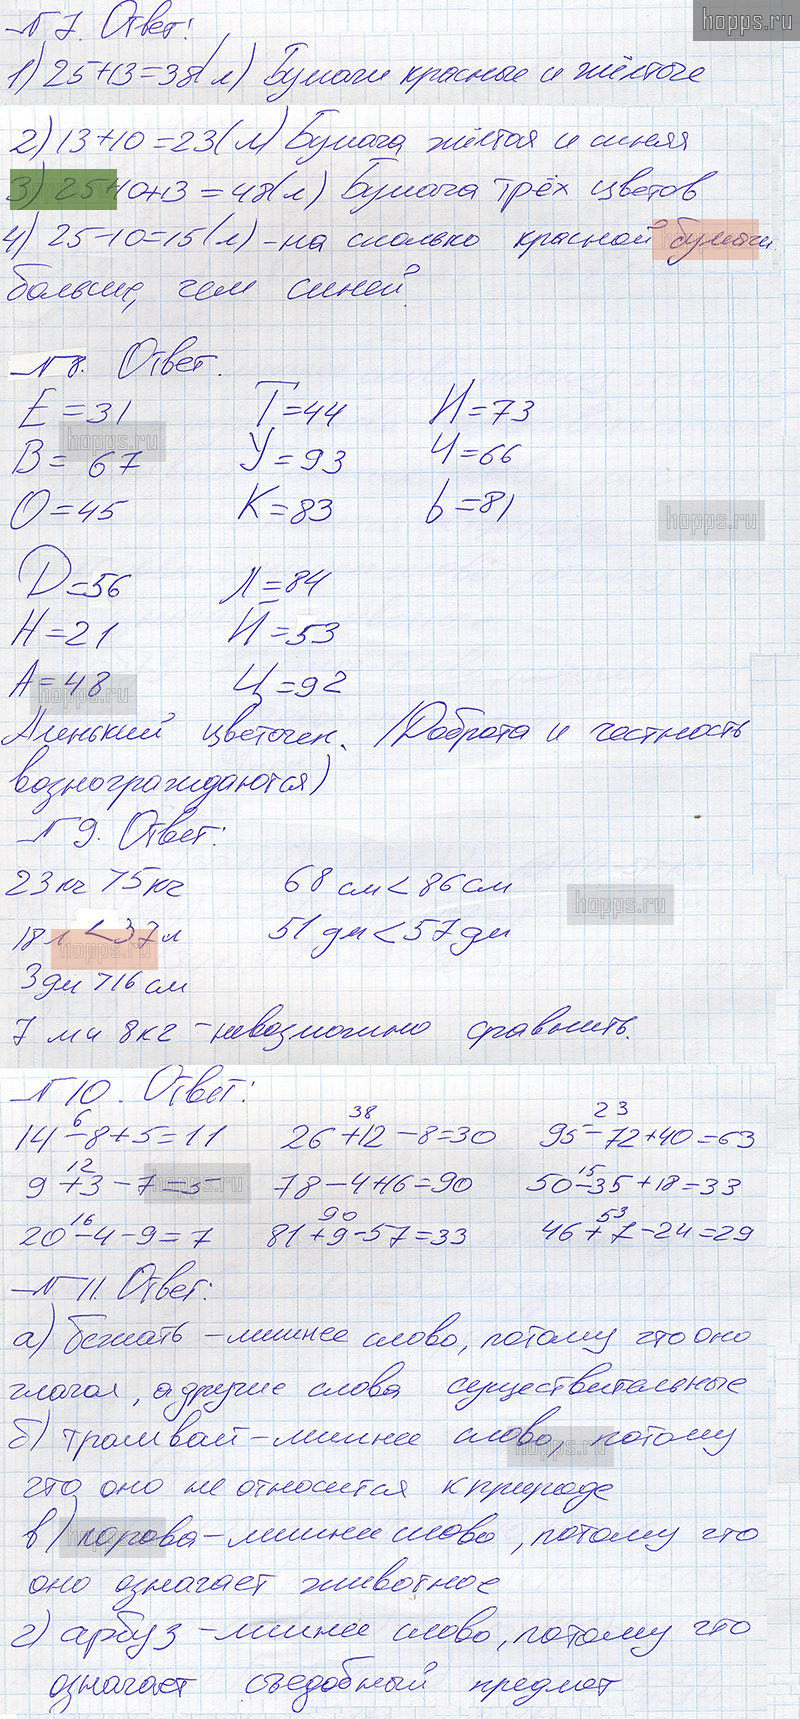 hopps.ru
№7. Ответ:
1) 25+13=38(л) Бумаги красные и жёлтые
2) 13+10=23(л) Бумага жёлтая и синяя
3) 25+10+13=48(л) Бумага трёх цветов
4) 25-10=15(л) - на сколько красной бумаги
больше, чем синей.
№8. Ответ.
Е=31 Т=44 И=73
В=67 У=93 Ч=66
О=45 К=83 Ь=81
Д=56 Л=84
Н=21 Й=53
А=48 Ц=92
Аленький цветочек. (Доброта и честность
вознограждаются)
№9. Ответ:
23 кг > 5 кг 68 см < 86 см
18 л < 37 л 51 дм < 57 дм
3 дм > 16 см
7 м и 8 кг - невозможно сравнить.
№10. Ответ:
6 38 23
14-8+5=11 26+12-8=30 95-72+40=63
12 15
9+3-7=5 78-4+16=90 50-35+18=33
16 90 53
20-4-9=7 81+9-57=33 46+7-24=29
№11. Ответ:
а) бежать - лишнее слово, потому что оно
глагол, а другие слова существительные
б) трамвай - лишнее слово, потому
что оно не относится к природе
в) корова - лишнее слово, потому что
оно означает животное
г) арбуз - лишнее слово, потому что
означает съедобный предмет